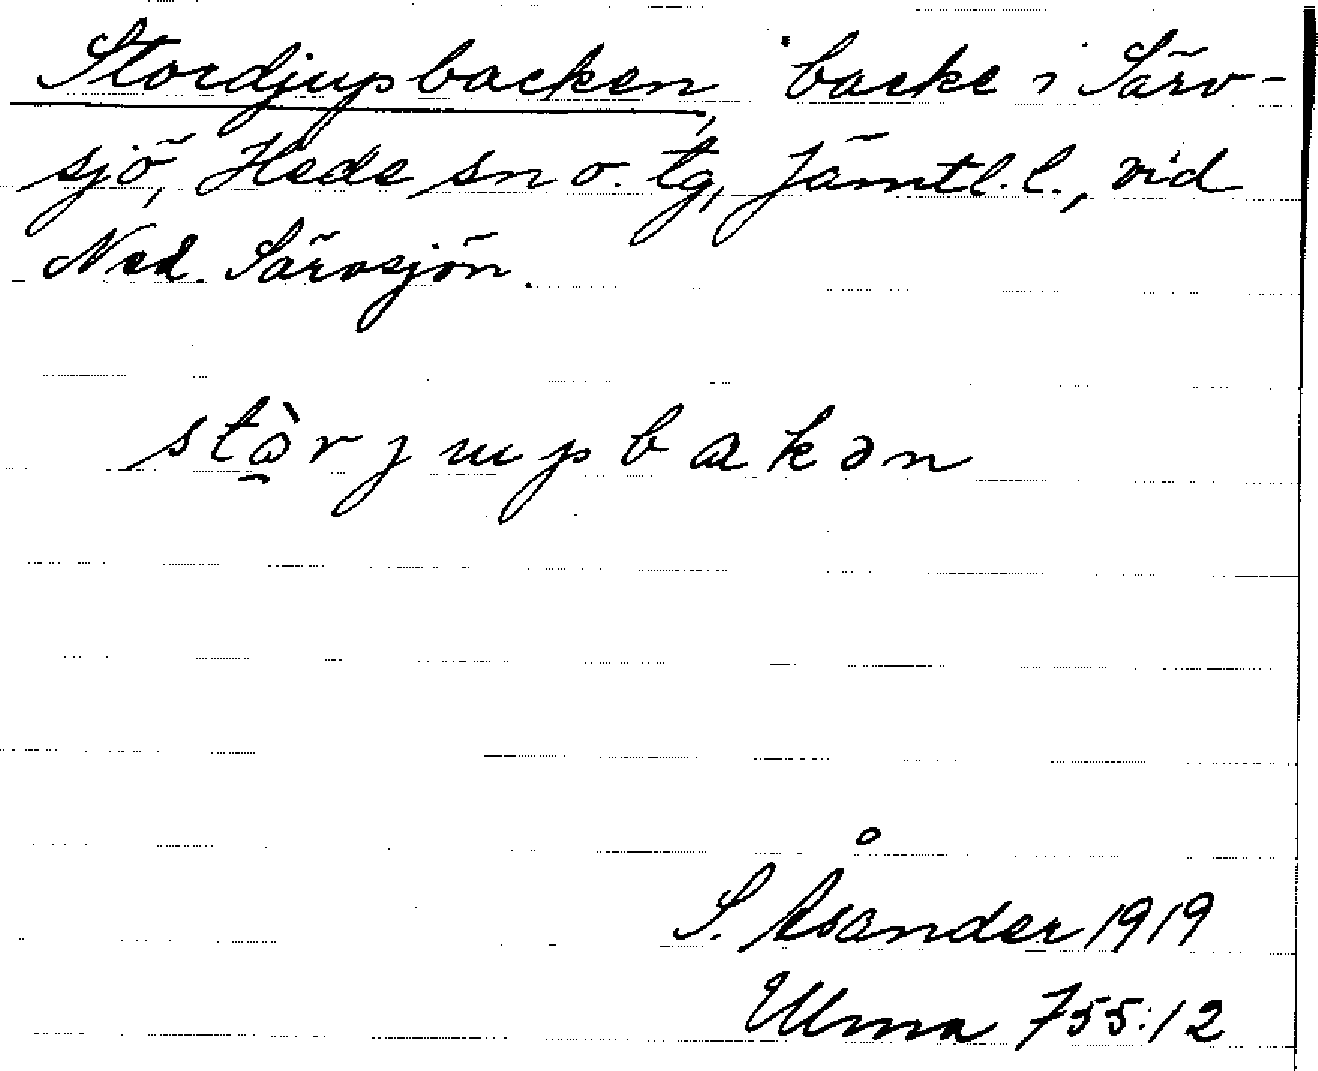 Stordjupbacken, backe i Särv-
sjö, Hede sn o. tg, Jämtl. l., vid
Ned. Särvsjön.
stò̱rjupbakən
S. Åsander 1919
Ulma 755:12